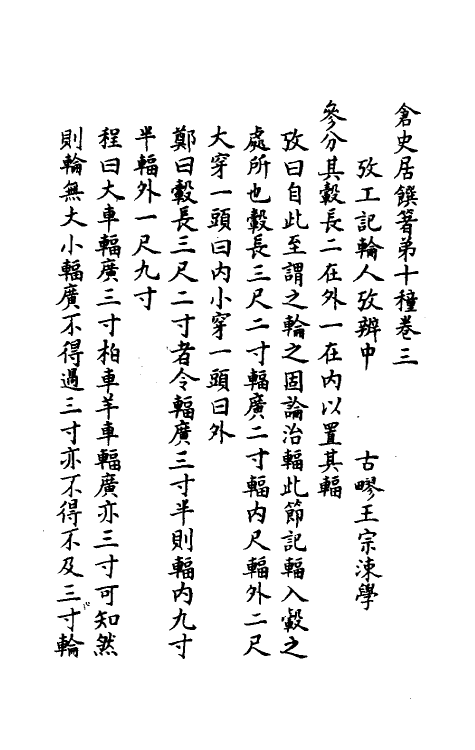 倉史居饌箸弟十種卷三
攷工記輪人攷辨中　　古疁王宗涑學
參分其轂長二在外一在內以置其輻
攷曰自此至謂之輪之固論治輻此節記輻入轂之
處所也轂長三尺二寸輻廣二寸輻內尺輻外二尺
大穿一頭曰內小穿一頭曰外
鄭曰轂長三尺二寸者令輻廣三寸半則輻內九寸
半輻外一尺九寸
程曰大車輻廣三寸柏車羊車輻廣亦三寸可知然
則輪無大小輻廣不得過三寸亦不得不及三寸輪